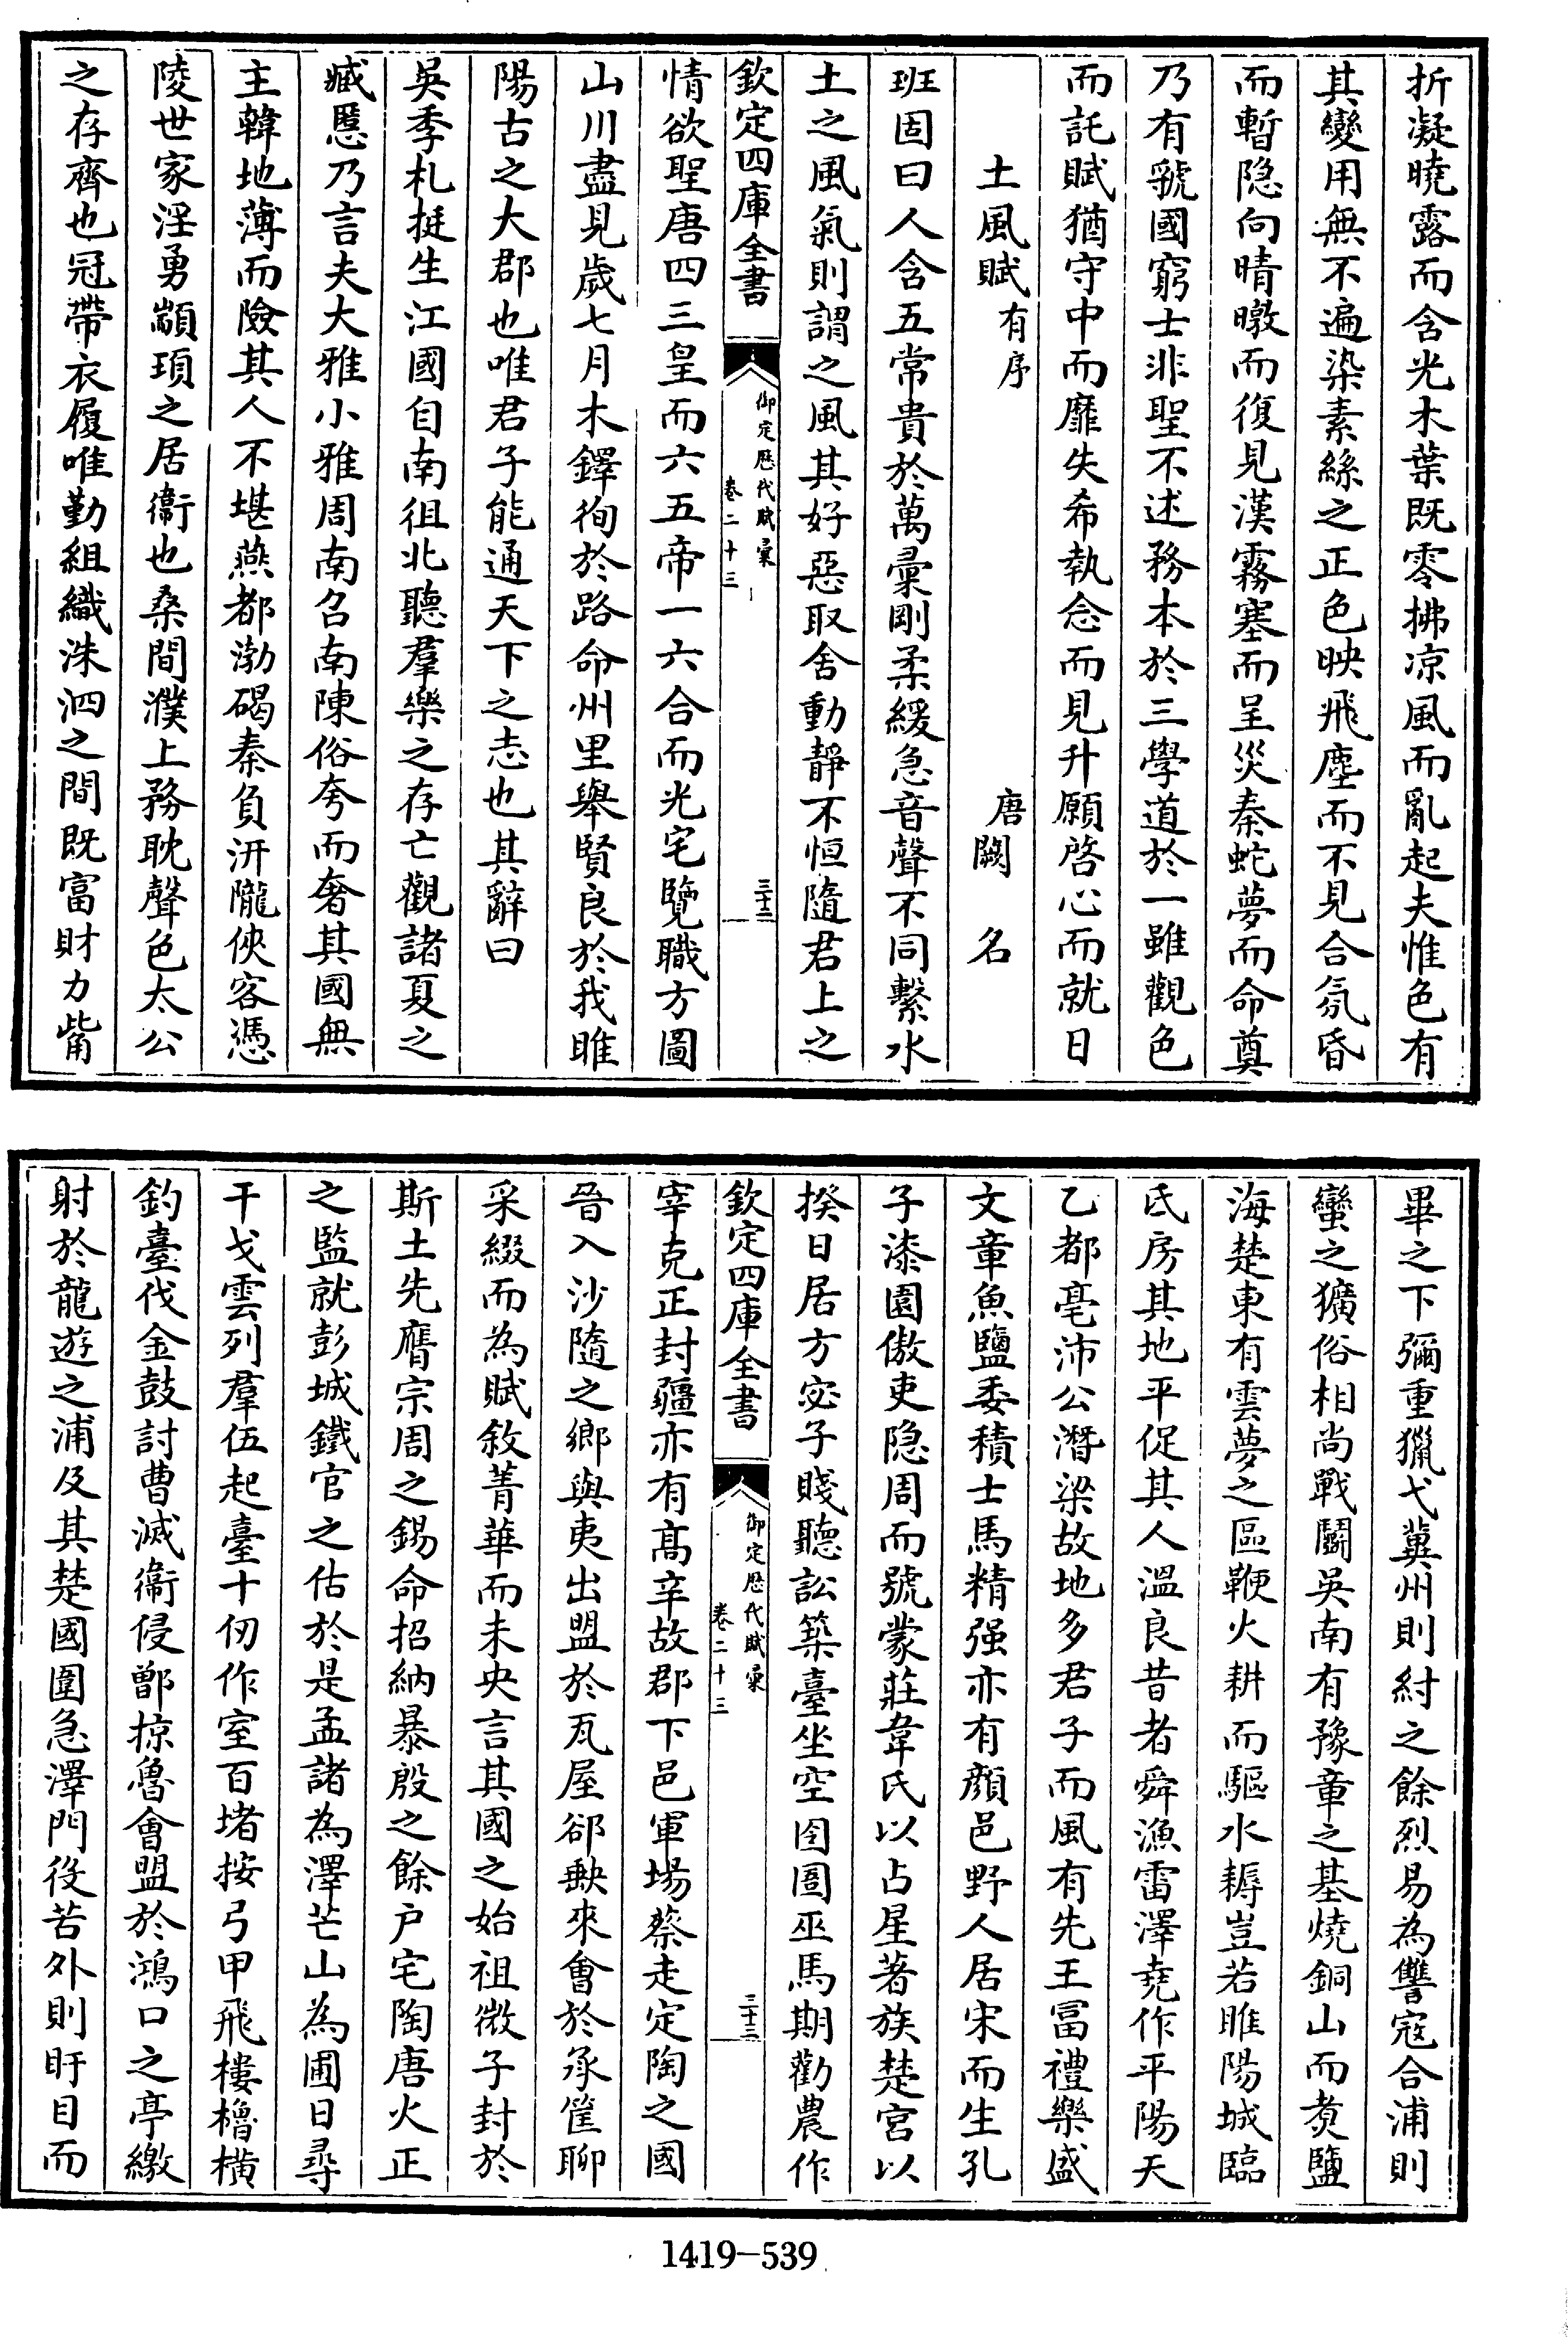 折凝曉露而含光木葉既零拂凉風而亂起夫惟色有
其變用無不遍染素絲之正色映飛塵而不見合氛昏
而暫隐向晴暾而復見漢霧塞而呈災秦蛇夢而命奠
乃有虢國窮士非聖不述務本於三學道於一雖觀色
而託賦猶守中而靡失希執念而見升願啓心而就日
土風賦有序 唐闕名
班固曰人含五常貴於萬彚剛柔緩急音聲不同繫水
土之風氣則謂之風其好惡取舍動靜不恒隨君上之
欽定四庫全書 御定歷代賦彙 卷二十三 三十二
情欲聖唐四三皇而六五帝一六合而光宅覽職方圖
山川盡見歲七月木鐸徇於路命州里舉賢良於我睢
陽古之大郡也唯君子能通天下之志也其辭曰
吳季札挺生江國自南徂北聽羣樂之存亡觀諸夏之
臧慝乃言夫大雅小雅周南召南陳俗夸而奢其國無
主韓地薄而險其人不堪燕都渤碣秦負汧隴俠客憑
陵世家淫勇顓頊之居衞也桑間濮上務耽聲色太公
之存齊也冠帶衣履唯勤組織洙泗之間既富財力觜
畢之下彌重獵弋冀州則紂之餘烈易為讐寇合浦則
蠻之獷俗相尚戰鬭吳南有豫章之基燒銅山而煑鹽
海楚東有雲夢之區鞭火耕而驅水耨豈若睢陽城臨
氐房其地平促其人溫良昔者舜漁雷澤堯作平陽天
乙都亳沛公潛梁故地多君子而風有先王冨禮樂盛
文章魚鹽委積士馬精强亦有顔邑野人居宋而生孔
子漆園傲吏隐周而號蒙莊韋氏以占星著族楚宮以
揆日居方宓子賤聽訟築臺坐空囹圄巫馬期勸農作
欽定四庫全書 御定歷代賦彙 卷二十三 三十三
宰克正封疆亦有髙辛故郡下邑軍場蔡走定陶之國
晉入沙隨之鄉與夷出盟於瓦屋郤缺來會於承筐聊
采綴而為賦敘菁華而未央言其國之始祖微子封於
斯土先膺宗周之錫命招納暴殷之餘户宅陶唐火正
之監就彭城鐵官之估於是孟諸為澤芒山為圃日尋
干戈雲列羣伍起臺十仞作室百堵按弓甲飛樓櫓橫
釣臺伐金鼓討曹滅衞侵鄫掠魯會盟於鴻口之亭繳
射於龍遊之浦及其楚國圍急澤門役苦外則盱目而
1419-539